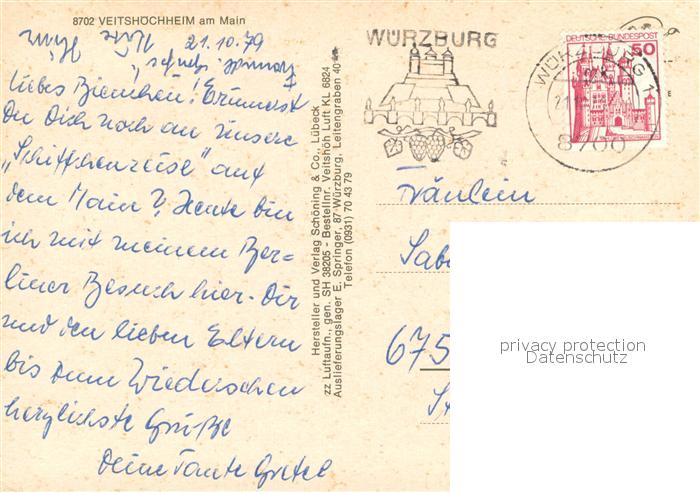 8702 VEITSHÖCHHEIM am Main
21.10.79
Liebes Bienchen! Erinnerst
Du Dich noch an unsere
„Schiffchenreise" auf
dem Main? Heute bin
ich mit meinem Ber=
liner Besuch hier. Dir
und den lieben Eltern
bis zum Wiedersehen
herzlichste Grüße
Deine Tante Gretel
Hersteller und Verlag Schöning & Co., Lübeck
zz Luftaufn., gen. SH 38205 - Bestellnr. Veitshöh Luft KL 6824
Auslieferungslager E. Springer, 87 Würzburg, Leitengraben 40
Telefon (0931) 70 43 79
WÜRZBURG
DEUTSCHE BUNDESPOST
50
WÜRZBURG 1
8700
Fräulein
Sab
675
privacy protection
Datenschutz